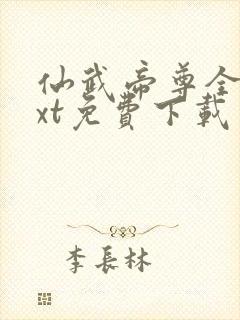 仙武帝尊全
xt免費下載
李長林